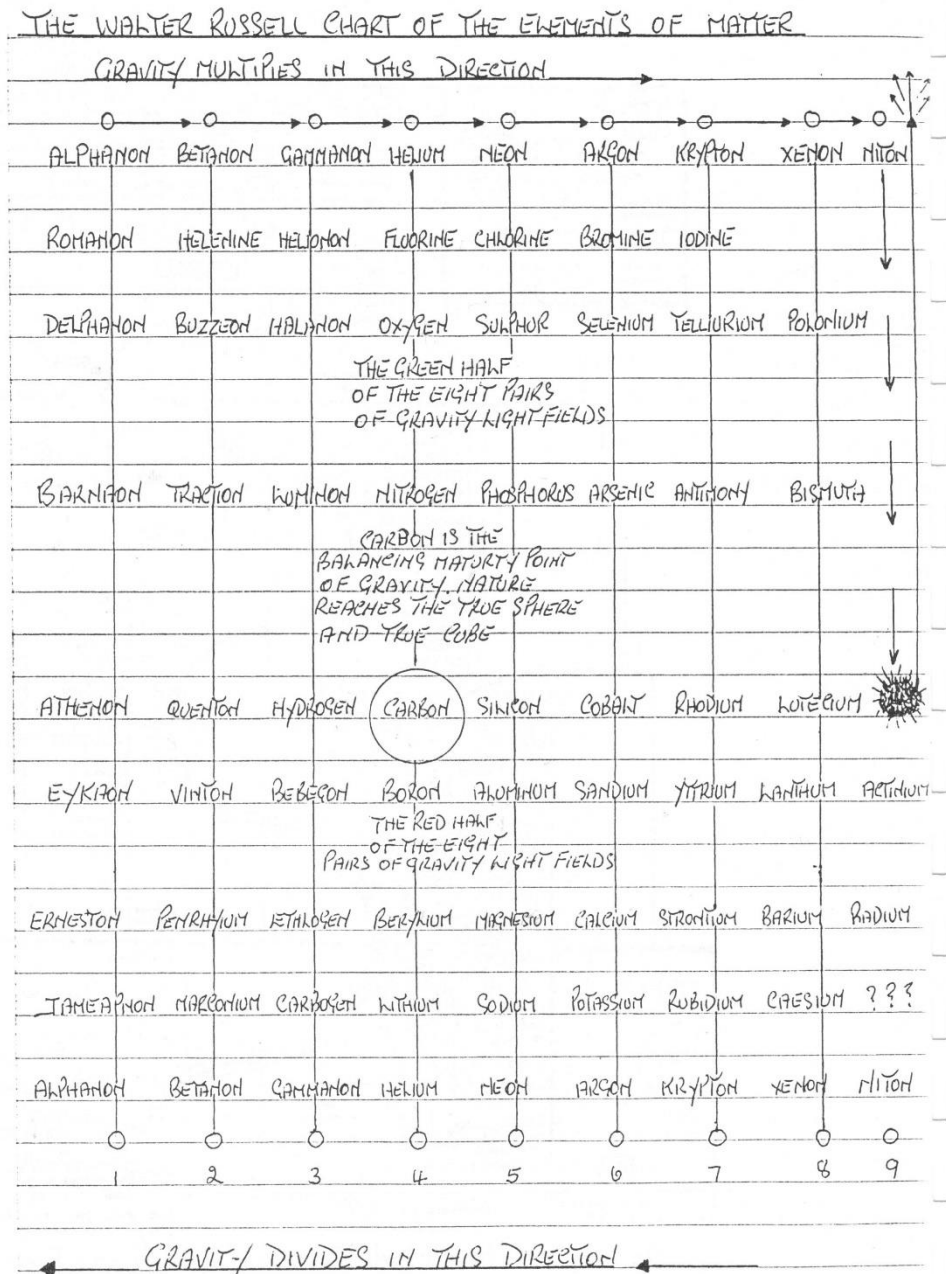 THE WALTER RUSSELL CHART OF THE ELEMENTS OF MATTER
GRAVITY MULTIPIES IN THIS DIRECTION
ALPHANON BETANON GAMMANON HELIUM NEON ARGON KRYPTON XENON NITON
ROMANON HELENINE HELIONON FLUORINE CHLORINE BROMINE IODINE
DELPHANON BUZZEON HALANON OXYGEN SULPHUR SELENIUM TELLIURIUM POLONIUM
THE GREEN HALF
OF THE EIGHT PAIRS
OF GRAVITY LIGHT FIELDS
BARNAON TRACTION LUMINON NITROGEN PHOSPHORUS ARSENIC ANTIMONY BISMUTH
CARBON IS THE
BALANCING MATURTY POINT
OF GRAVITY. NATURE
REACHES THE TRUE SPHERE
AND TRUE CUBE
ATHENON QUENTON HYDROGEN CARBON SILICON COBALT RHODIUM LUTECIUM
EYKAON VINTON BEBEGON BORON ALUMINUM SANDIUM YTTRIUM LANTHUM ACTINIUM
THE RED HALF
OF THE EIGHT
PAIRS OF GRAVITY LIGHT FIELDS
ERNESTON PENRHYIUM LETHLOGEN BERYLIUM MAGNESIUM CALCIUM STRONTIUM BARIUM RADIUM
TAMEAPNON MARCONIUM CARBOGEN LITHIUM SODIUM POTASSIUM RUBIDIUM CAESIUM ???
ALPHANON BETANON GAMMANON HELIUM NEON ARGON KRYPTON XENON NITON
1 2 3 4 5 6 7 8 9
GRAVITY DIVIDES IN THIS DIRECTION